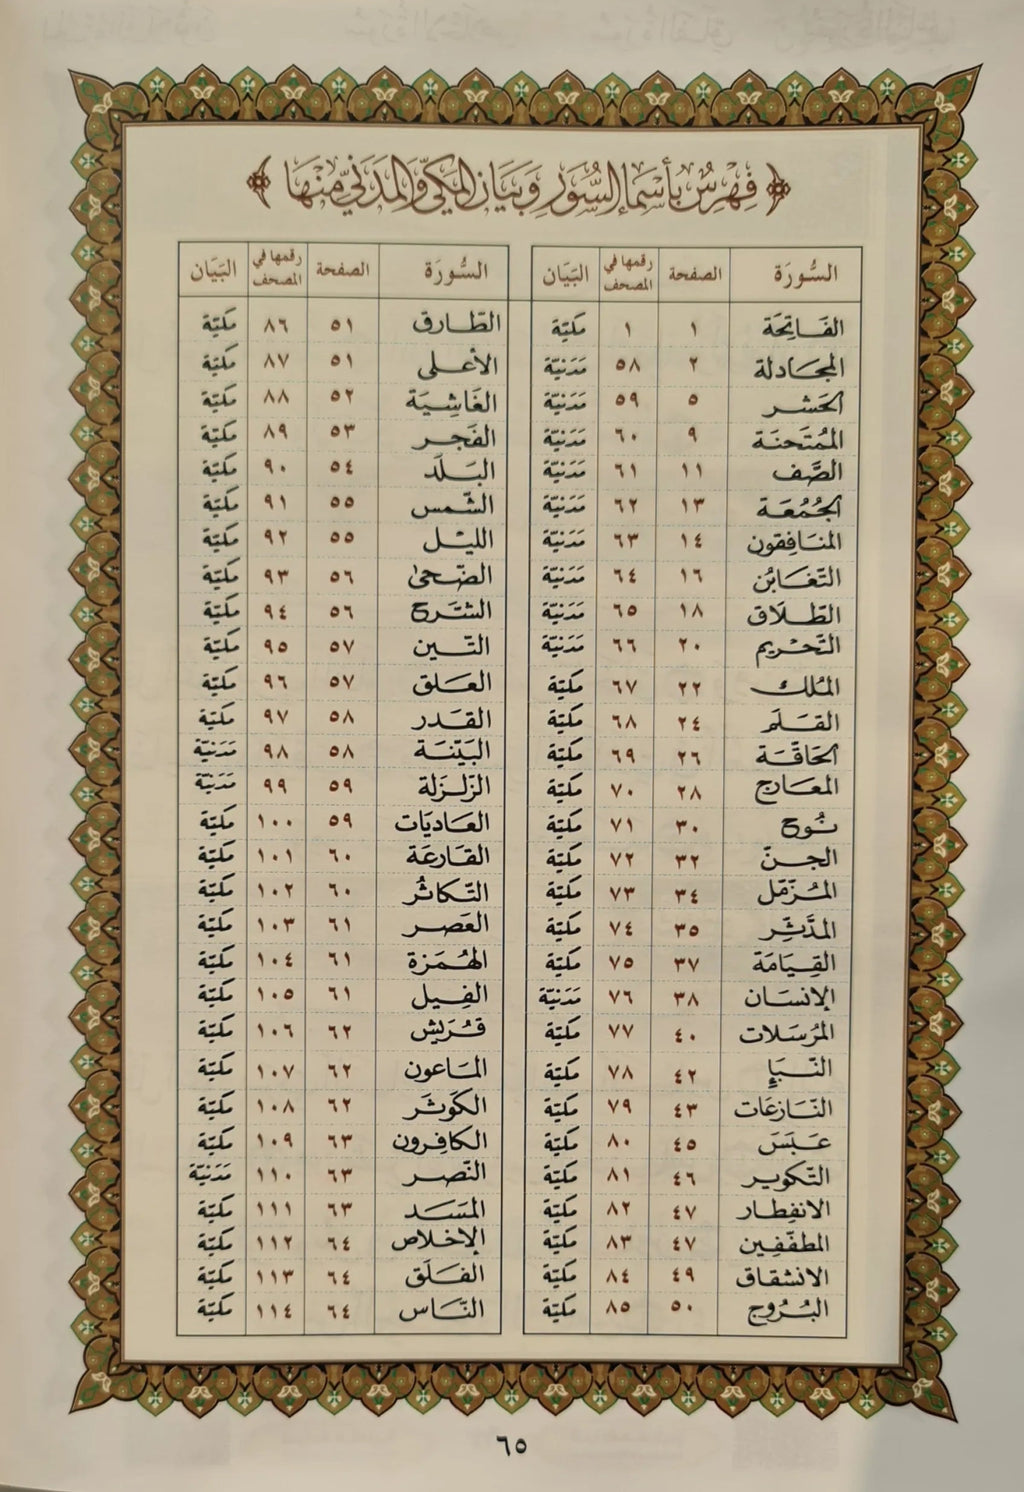 ﴿ فِهْرِسٌ بِأَسْمَاءِ السُّوَرِ وَبَيَانِ المَكِّيِّ وَالمَدَنِيِّ مِنْهَا ﴾
السُّورَة الصفحة رقمها في المصحف البَيَان
الفَاتِحَة ١ ١ مكيّة
المجَادلة ٢ ٥٨ مَدَنيّة
الحَشر ٥ ٥٩ مَدَنيّة
المُمتَحنَة ٩ ٦٠ مَدَنيّة
الصَّف ١١ ٦١ مَدَنيّة
الجُمُعَة ١٣ ٦٢ مَدَنيّة
المنَافِقون ١٤ ٦٣ مَدَنيّة
التّغَابُن ١٦ ٦٤ مَدَنيّة
الطّلَاق ١٨ ٦٥ مَدَنيّة
التّحْريم ٢٠ ٦٦ مَدَنيّة
المُلك ٢٢ ٦٧ مكيّة
القَلَم ٢٤ ٦٨ مكيّة
الحَاقّة ٢٦ ٦٩ مكيّة
المعَارج ٢٨ ٧٠ مكيّة
نُوح ٣٠ ٧١ مكيّة
الجنّ ٣٢ ٧٢ مكيّة
المُزّمّل ٣٤ ٧٣ مكيّة
المدَّثِّر ٣٥ ٧٤ مكيّة
القِيَامَة ٣٧ ٧٥ مكيّة
الإنسَان ٣٨ ٧٦ مَدَنيّة
المُرسَلات ٤٠ ٧٧ مكيّة
النّبَإِ ٤٢ ٧٨ مكيّة
النّازعَات ٤٣ ٧٩ مكيّة
عَبَسَ ٤٥ ٨٠ مكيّة
التّكوير ٤٦ ٨١ مكيّة
الانفِطار ٤٧ ٨٢ مكيّة
المطفّفِين ٤٧ ٨٣ مكيّة
الانشقاق ٤٩ ٨٤ مكيّة
البُرُوج ٥٠ ٨٥ مكيّة
السُّورَة الصفحة رقمها في المصحف البَيَان
الطّارق ٥١ ٨٦ مكيّة
الأعْلى ٥١ ٨٧ مكيّة
الغَاشِيَة ٥٢ ٨٨ مكيّة
الفَجر ٥٣ ٨٩ مكيّة
البَلَد ٥٤ ٩٠ مكيّة
الشّمس ٥٥ ٩١ مكيّة
الليْل ٥٥ ٩٢ مكيّة
الضّحىٰ ٥٦ ٩٣ مكيّة
الشّرح ٥٦ ٩٤ مكيّة
التّين ٥٧ ٩٥ مكيّة
العَلق ٥٧ ٩٦ مكيّة
القَدر ٥٨ ٩٧ مكيّة
البَيّنَة ٥٨ ٩٨ مَدَنيّة
الزّلزلة ٥٩ ٩٩ مَدَنيّة
العَاديَات ٥٩ ١٠٠ مكيّة
القارعَة ٦٠ ١٠١ مكيّة
التّكاثُر ٦٠ ١٠٢ مكيّة
العَصر ٦١ ١٠٣ مكيّة
الهُمَزة ٦١ ١٠٤ مكيّة
الفِيل ٦١ ١٠٥ مكيّة
قُرَيش ٦٢ ١٠٦ مكيّة
المَاعون ٦٢ ١٠٧ مكيّة
الكَوثَر ٦٢ ١٠٨ مكيّة
الكافِرون ٦٣ ١٠٩ مكيّة
النّصر ٦٣ ١١٠ مَدَنيّة
المَسَد ٦٣ ١١١ مكيّة
الإخلاص ٦٤ ١١٢ مكيّة
الفَلَق ٦٤ ١١٣ مكيّة
النّاس ٦٤ ١١٤ مكيّة
٦٥